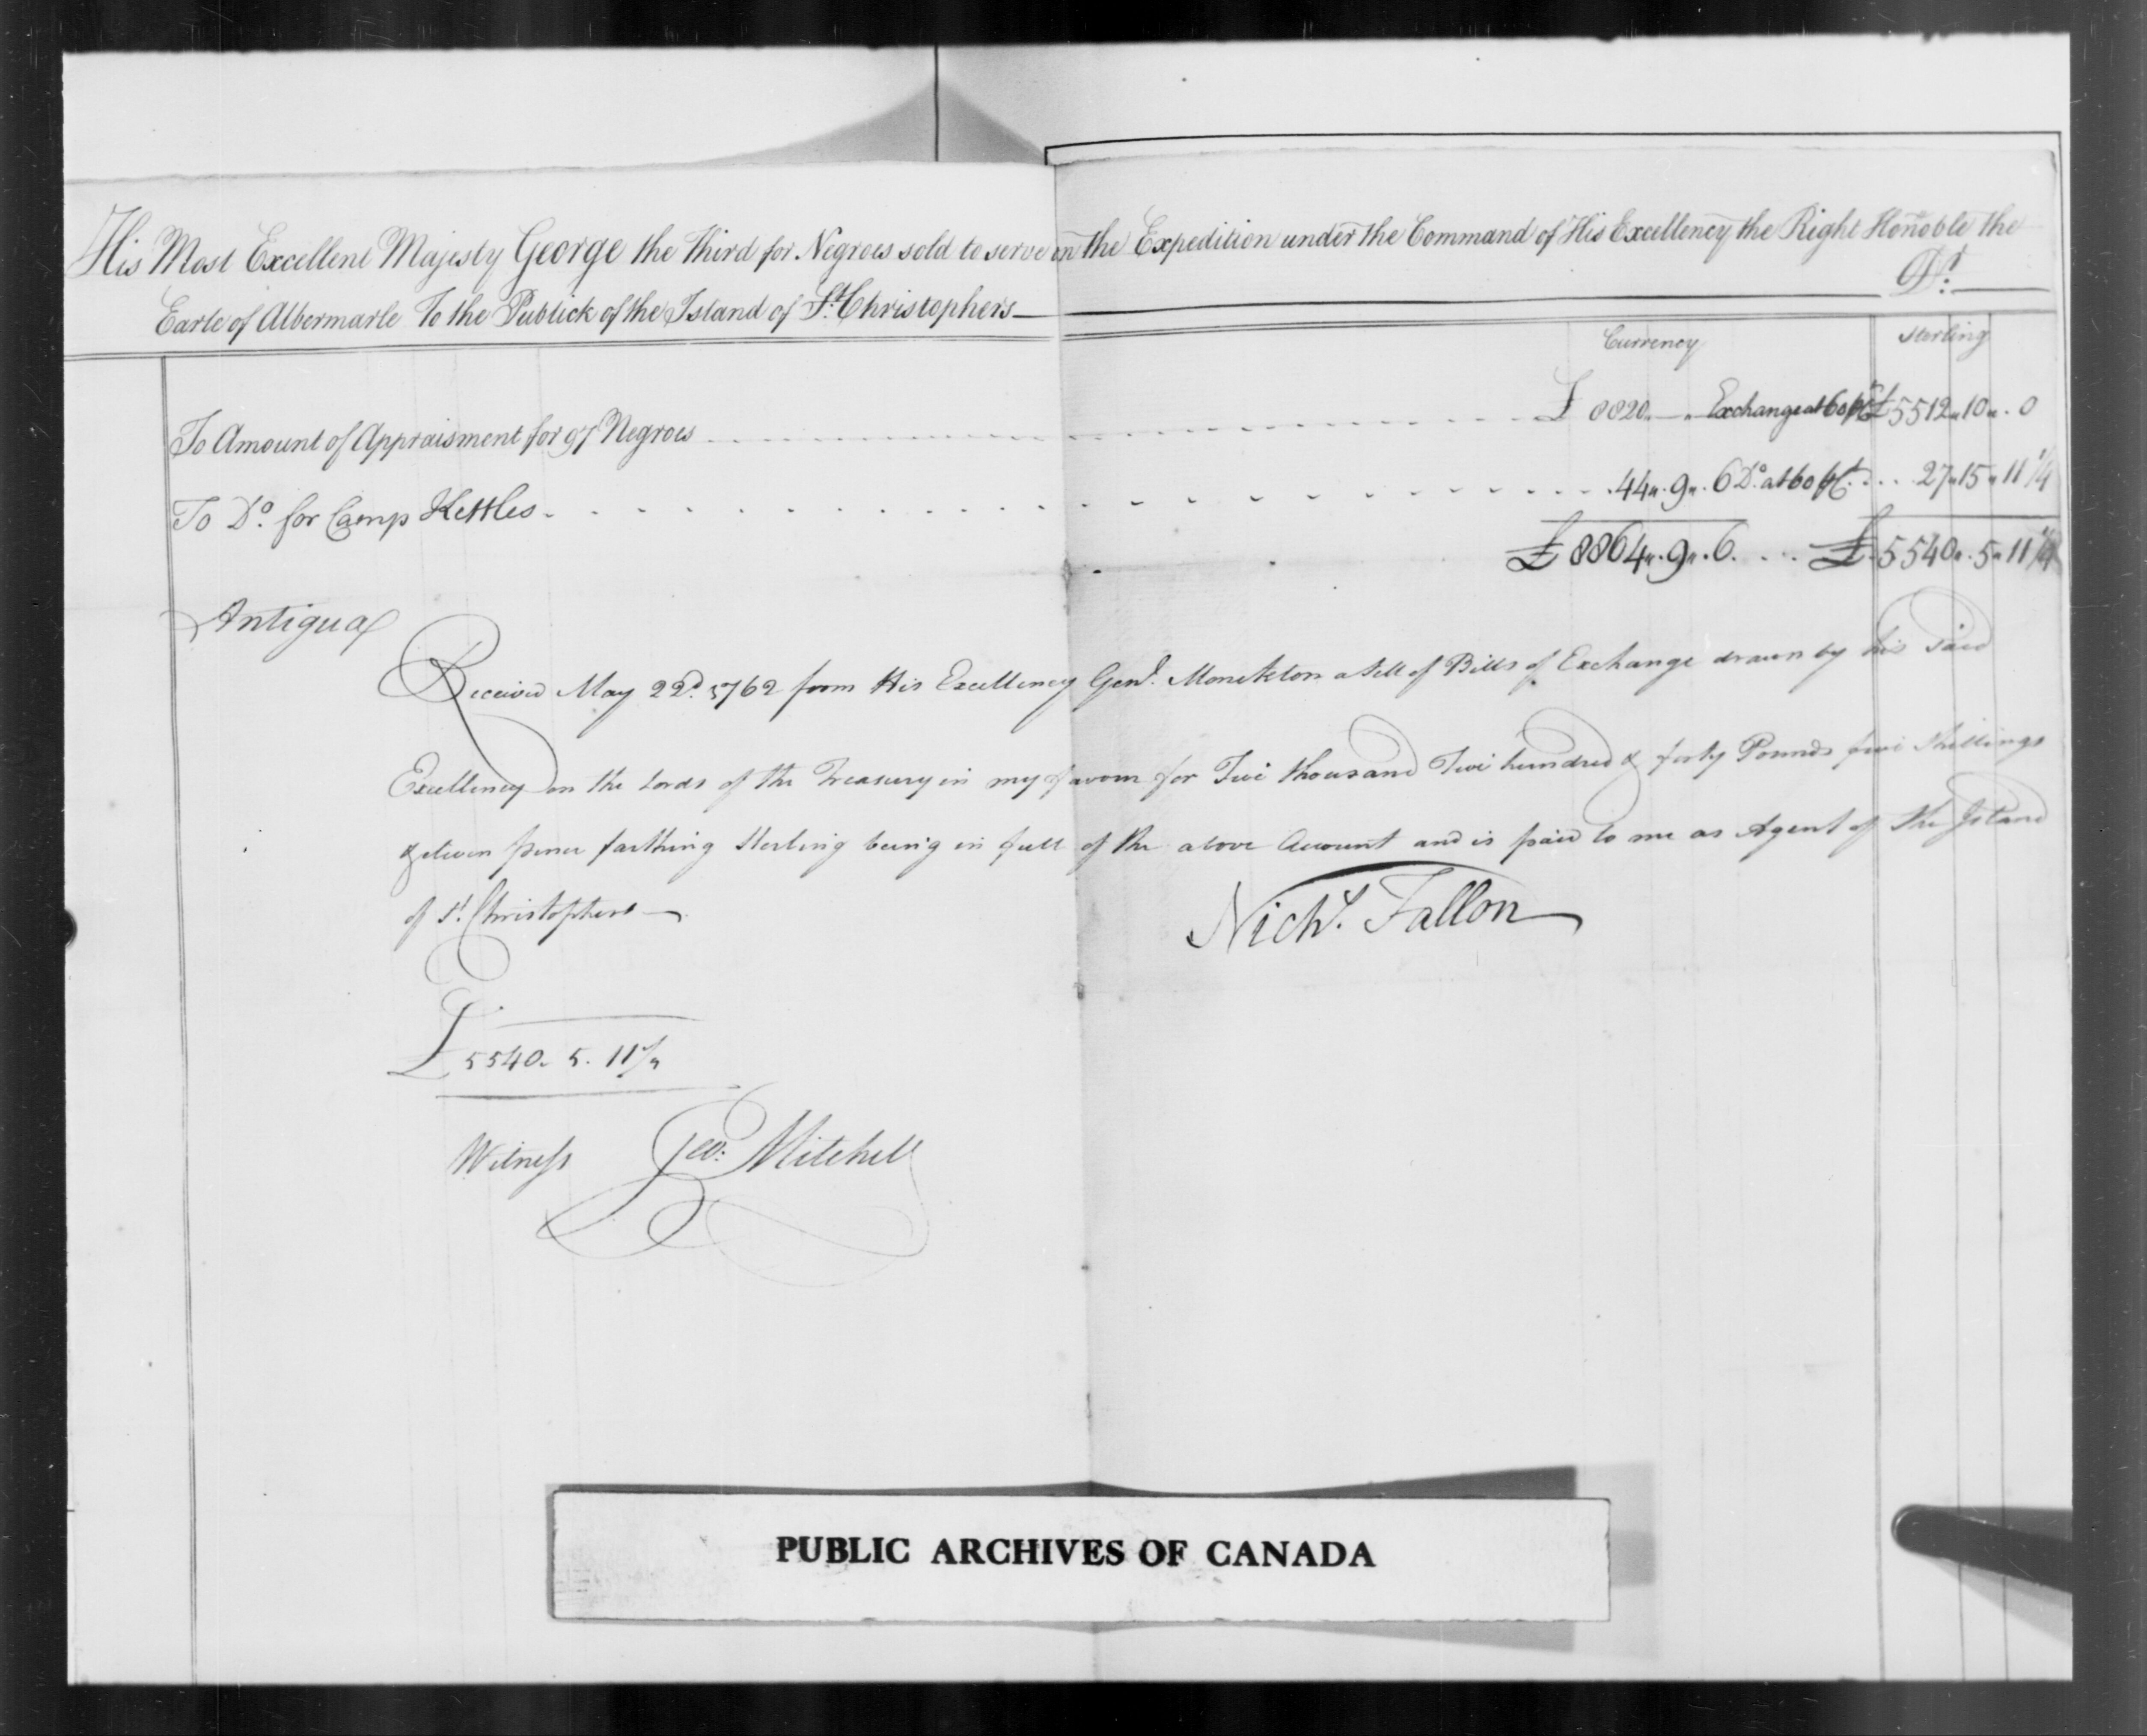 His Most Excellent Majesty George the Third for Negroes sold to serve in the Expedition under the Command of His Excellency the Right Honoble the
Earle of Albermarle To the Publick of the Island of St. Christophers Dr.
Currency Sterling
To Amount of Appraisment for 97 Negroes £ 8820 Exchange at 60 p Ct £5512 " 10 " 0
To Do. for Camp Kettles 44 " 9 " 6 Do. at 60 p Ct. 27 " 15 " 11 1/4
£ 8864 " 9 " 6 £ 5540 " 5 " 11 1/4
Antigua
Received May 22d. 1762 from His Excellency Genl. Monckton a Sett of Bills of Exchange drawn by his said
Excellency on the Lords of the Treasury in my favour for Five thousand Five hundred & forty Pounds five Shillings
& eleven pence farthing Sterling being in full of the above Account and is paid to me as Agent of the Island
of St. Christophers
Nichs. Fallon
£ 5540. 5. 11 1/4
Witness Geo: Mitchell
PUBLIC ARCHIVES OF CANADA